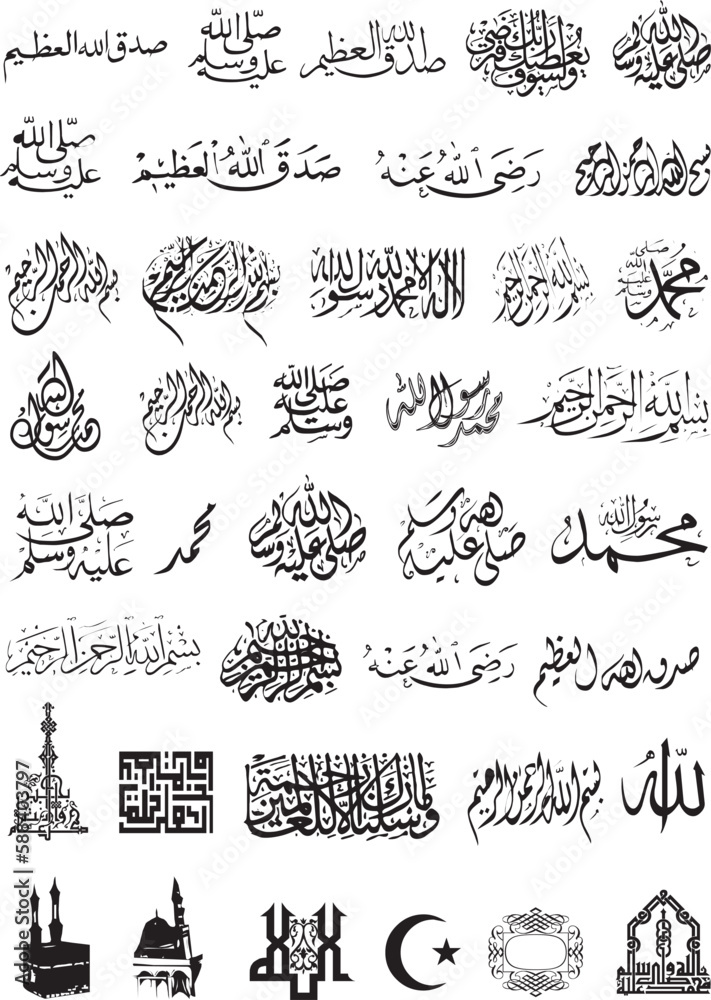 صدق الله العظيم
صلى الله عليه وسلم
صدق الله العظيم
ولسوف يعطيك ربك فترضى
صلى الله عليه وسلم
صلى الله عليه وسلم
صَدَقَ اللهُ الْعَظِيْمْ
رَضِىَ اللهُ عَنْهُ
بسم الله الرحمن الرحيم
بسم الله الرحمن الرحيم
بسم الله الرحمن الرحيم
لا اله الا الله محمد رسول الله
بسم الله الرحمن الرحيم
محمد صلى الله عليه وسلم
محمد رسول الله
بسم الله الرحمن الرحيم
صلى الله عليه وسلم
محمد رسول الله
بسم الله الرحمن الرحيم
صلى الله عليه وسلم
محمد
صلى الله عليه وسلم
صلى الله عليه وسلم
محمد رسول الله
بسم الله الرحمن الرحيم
بسم الله الرحمن الرحيم
رَضِىَ اللهُ عَنْهُ
صدق الله العظيم
وما أرسلناك إلا رحمة للعالمين
بسم الله الرحمن الرحيم
الله
Adobe Stock